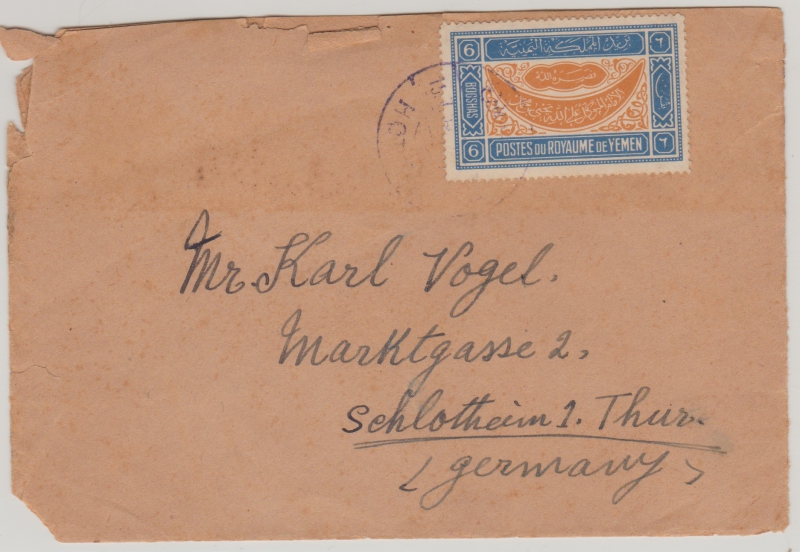 بريد المملكة اليمنية
6 ٦
BOGSHAS
نصره الله
6 ٦
POSTES DU ROYAUME DE YEMEN
HO
Mr. Karl Vogel.
Marktgasse 2,
Schlotheim 1. Thur.
(Germany)